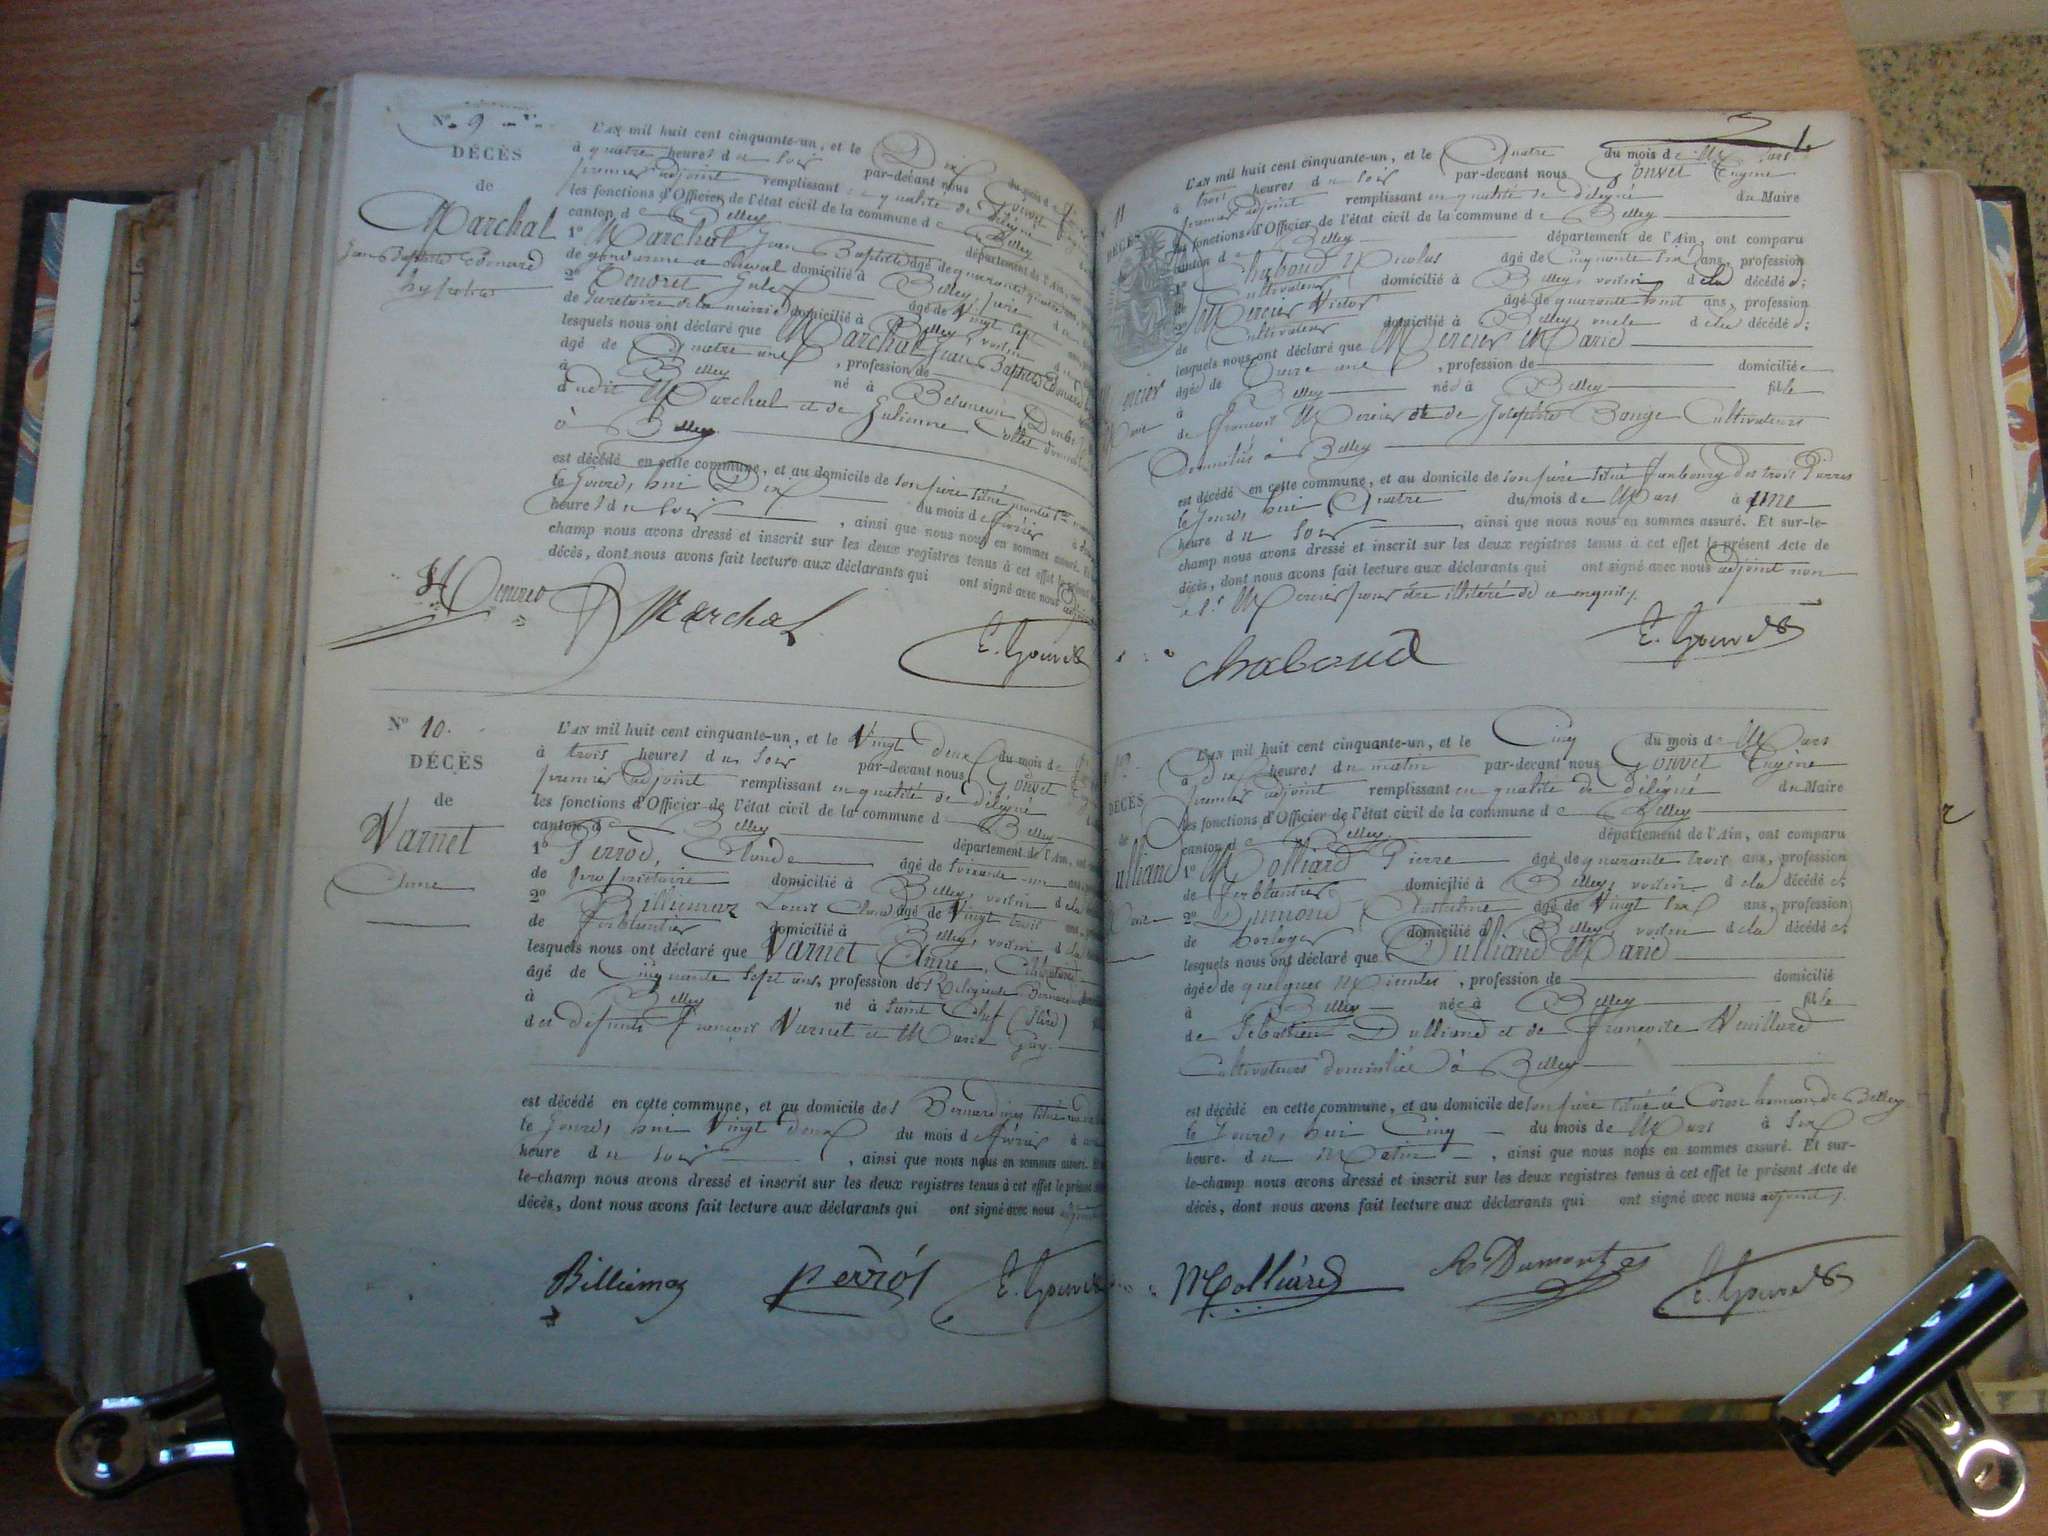 N° 9
DÉCÈS
de
Marchal
Jean Baptiste Edouard
L'AN mil huit cent cinquante-un, et le Dix du mois de
à quatre heures du soir par-devant nous Gouvet
premier adjoint remplissant en qualité de délégué
les fonctions d'Officier de l'état civil de la commune de Belley
canton de Belley département de l'Ain, ont
1° Marchal Jean Baptiste âgé de quarante quatre ans
de gendarme à cheval domicilié à Belley, père
2° Jules âgé de Vingt sept
de Secrétaire de la mairie domicilié à Belley, voisin
lesquels nous ont déclaré que Marchal Jean Baptiste Edouard
âgé de Quatre ans , profession de
à Belley né à Besançon Doubs
dudit Marchal et de Julienne Collet
à Belley
est décédé en cette commune, et au domicile de son père situé
le Jourd'hui Dix du mois de février à
heures du soir , ainsi que nous nous en sommes assuré. Et
champ nous avons dressé et inscrit sur les deux registres tenus à cet effet le présent
décès, dont nous avons fait lecture aux déclarants qui ont signé avec nous adjoint
Marchal E. Gouvet
N° 10.
DÉCÈS
de
Varnet
Anne
L'AN mil huit cent cinquante-un, et le Vingt deux du mois de
à trois heures du soir par-devant nous Gouvet
premier adjoint remplissant en qualité de délégué
les fonctions d'Officier de l'état civil de la commune de Belley
canton de Belley département de l'Ain, ont
1° Perrod, Claude âgé de soixante-un ans
de propriétaire domicilié à Belley, voisin de la
2° Billiemaz Louis Claude âgé de Vingt trois ans
de ferblantier domicilié à Belley, voisin de la
lesquels nous ont déclaré que Varnet Anne, Célibataire
âgé de Cinquante sept ans, profession de Religieuse Bernardine
à Belley né à Saint Chef (Isère)
des défunts François Varnet et Marie Guy
est décédé en cette commune, et au domicile des Bernardines situé
le Jourd'hui Vingt deux du mois de février à une
heure du soir , ainsi que nous nous en sommes assuré. Et
le-champ nous avons dressé et inscrit sur les deux registres tenus à cet effet le présent
décès, dont nous avons fait lecture aux déclarants qui ont signé avec nous adjoint
Billiemaz Perrod E. Gouvet
11
DÉCÈS
Mercier
Marie
L'AN mil huit cent cinquante-un, et le Quatre du mois de Mars
à trois heures du soir par-devant nous Gouvet Eugène
premier adjoint remplissant en qualité de délégué du Maire
les fonctions d'Officier de l'état civil de la commune de Belley
canton de Belley département de l'Ain, ont comparu
1° Chaboud Nicolas âgé de Cinquante six ans, profession
de Cultivateur domicilié à Belley, voisin de la décédée;
2° Mercier Victor âgé de quarante huit ans, profession
de Cultivateur domicilié à Belley, oncle de la décédée;
lesquels nous ont déclaré que Mercier Marie
âgée de Onze ans , profession de domiciliée
à Belley née à Belley fille
de François Mercier et de Josephte Bange Cultivateurs
domiciliés à Belley
est décédé en cette commune, et au domicile de son père situé faubourg des trois Pierres
le Jourd'hui Quatre du mois de Mars à une
heure du soir , ainsi que nous nous en sommes assuré. Et sur-le-
champ nous avons dressé et inscrit sur les deux registres tenus à cet effet le présent Acte de
décès, dont nous avons fait lecture aux déclarants qui ont signé avec nous adjoint non
le Sr Mercier pour être illitéré de ce enquis.
Chaboud E. Gouvet
12
DÉCÈS
de
Dulliand
Marie
L'AN mil huit cent cinquante-un, et le Cinq du mois de Mars
à Dix heures du matin par-devant nous Gouvet Eugène
premier adjoint remplissant en qualité de délégué du Maire
les fonctions d'Officier de l'état civil de la commune de Belley
canton de Belley département de l'Ain, ont comparu
1° Molliard Pierre âgé de quarante trois ans, profession
de ferblantier domicilié à Belley, voisin de la décédée;
2° Dumond Anthelme âgé de Vingt six ans, profession
de horloger domicilié à Belley, voisin de la décédée;
lesquels nous ont déclaré que Dulliand Marie
âgée de quelques Minutes , profession de domicilié
à Belley née à Belley fille
de Sébastien Dulliand et de Françoise Veuillard
Cultivateurs domiciliés à Belley
est décédé en cette commune, et au domicile de son père situé à Coron hameau de Belley
le Jourd'hui Cinq du mois de Mars à Six
heure. du Matin , ainsi que nous nous en sommes assuré. Et sur-
le-champ nous avons dressé et inscrit sur les deux registres tenus à cet effet le présent Acte de
décès, dont nous avons fait lecture aux déclarants qui ont signé avec nous adjoint.
Molliard E. Gouvet